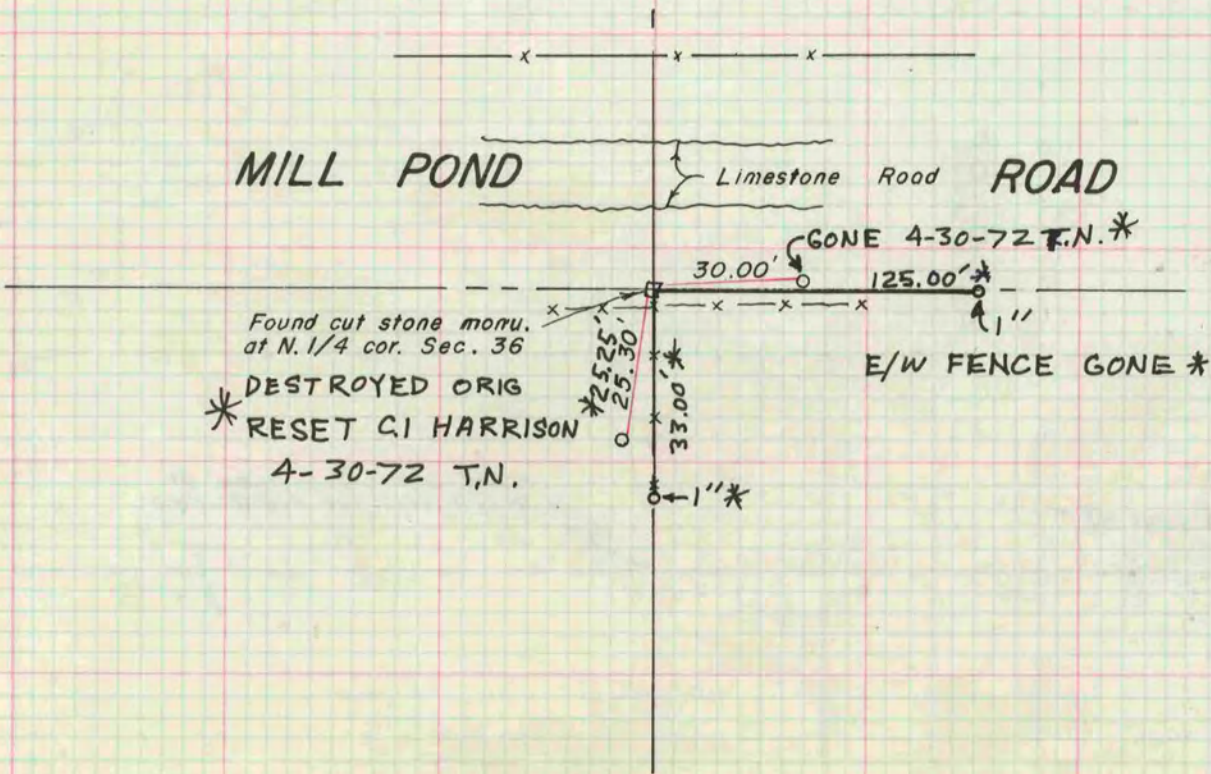 MILL POND
Limestone Road
ROAD
GONE 4-30-72 T.N.*
30.00'
125.00'*
1"
E/W FENCE GONE *
Found cut stone monu.
at N. 1/4 cor. Sec. 36
* DESTROYED ORIG
RESET C.I HARRISON
4-30-72 T.N.
*25.25'
25.30'
33.00'*
1"*